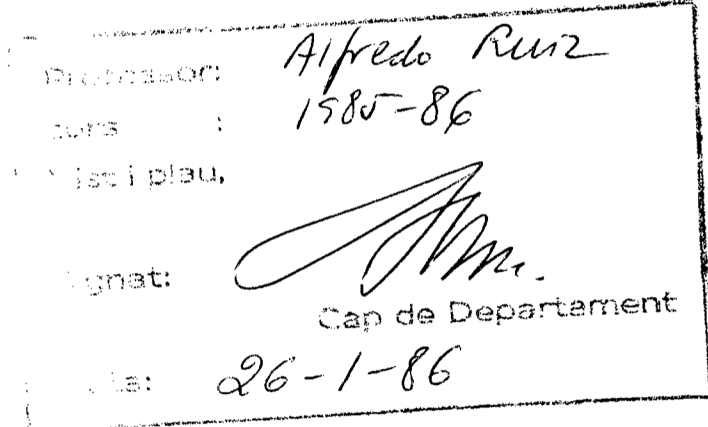 Professor: Alfredo Ruiz
curs : 1985-86
Vist i plau,
Signat:
Cap de Departament
26-1-86